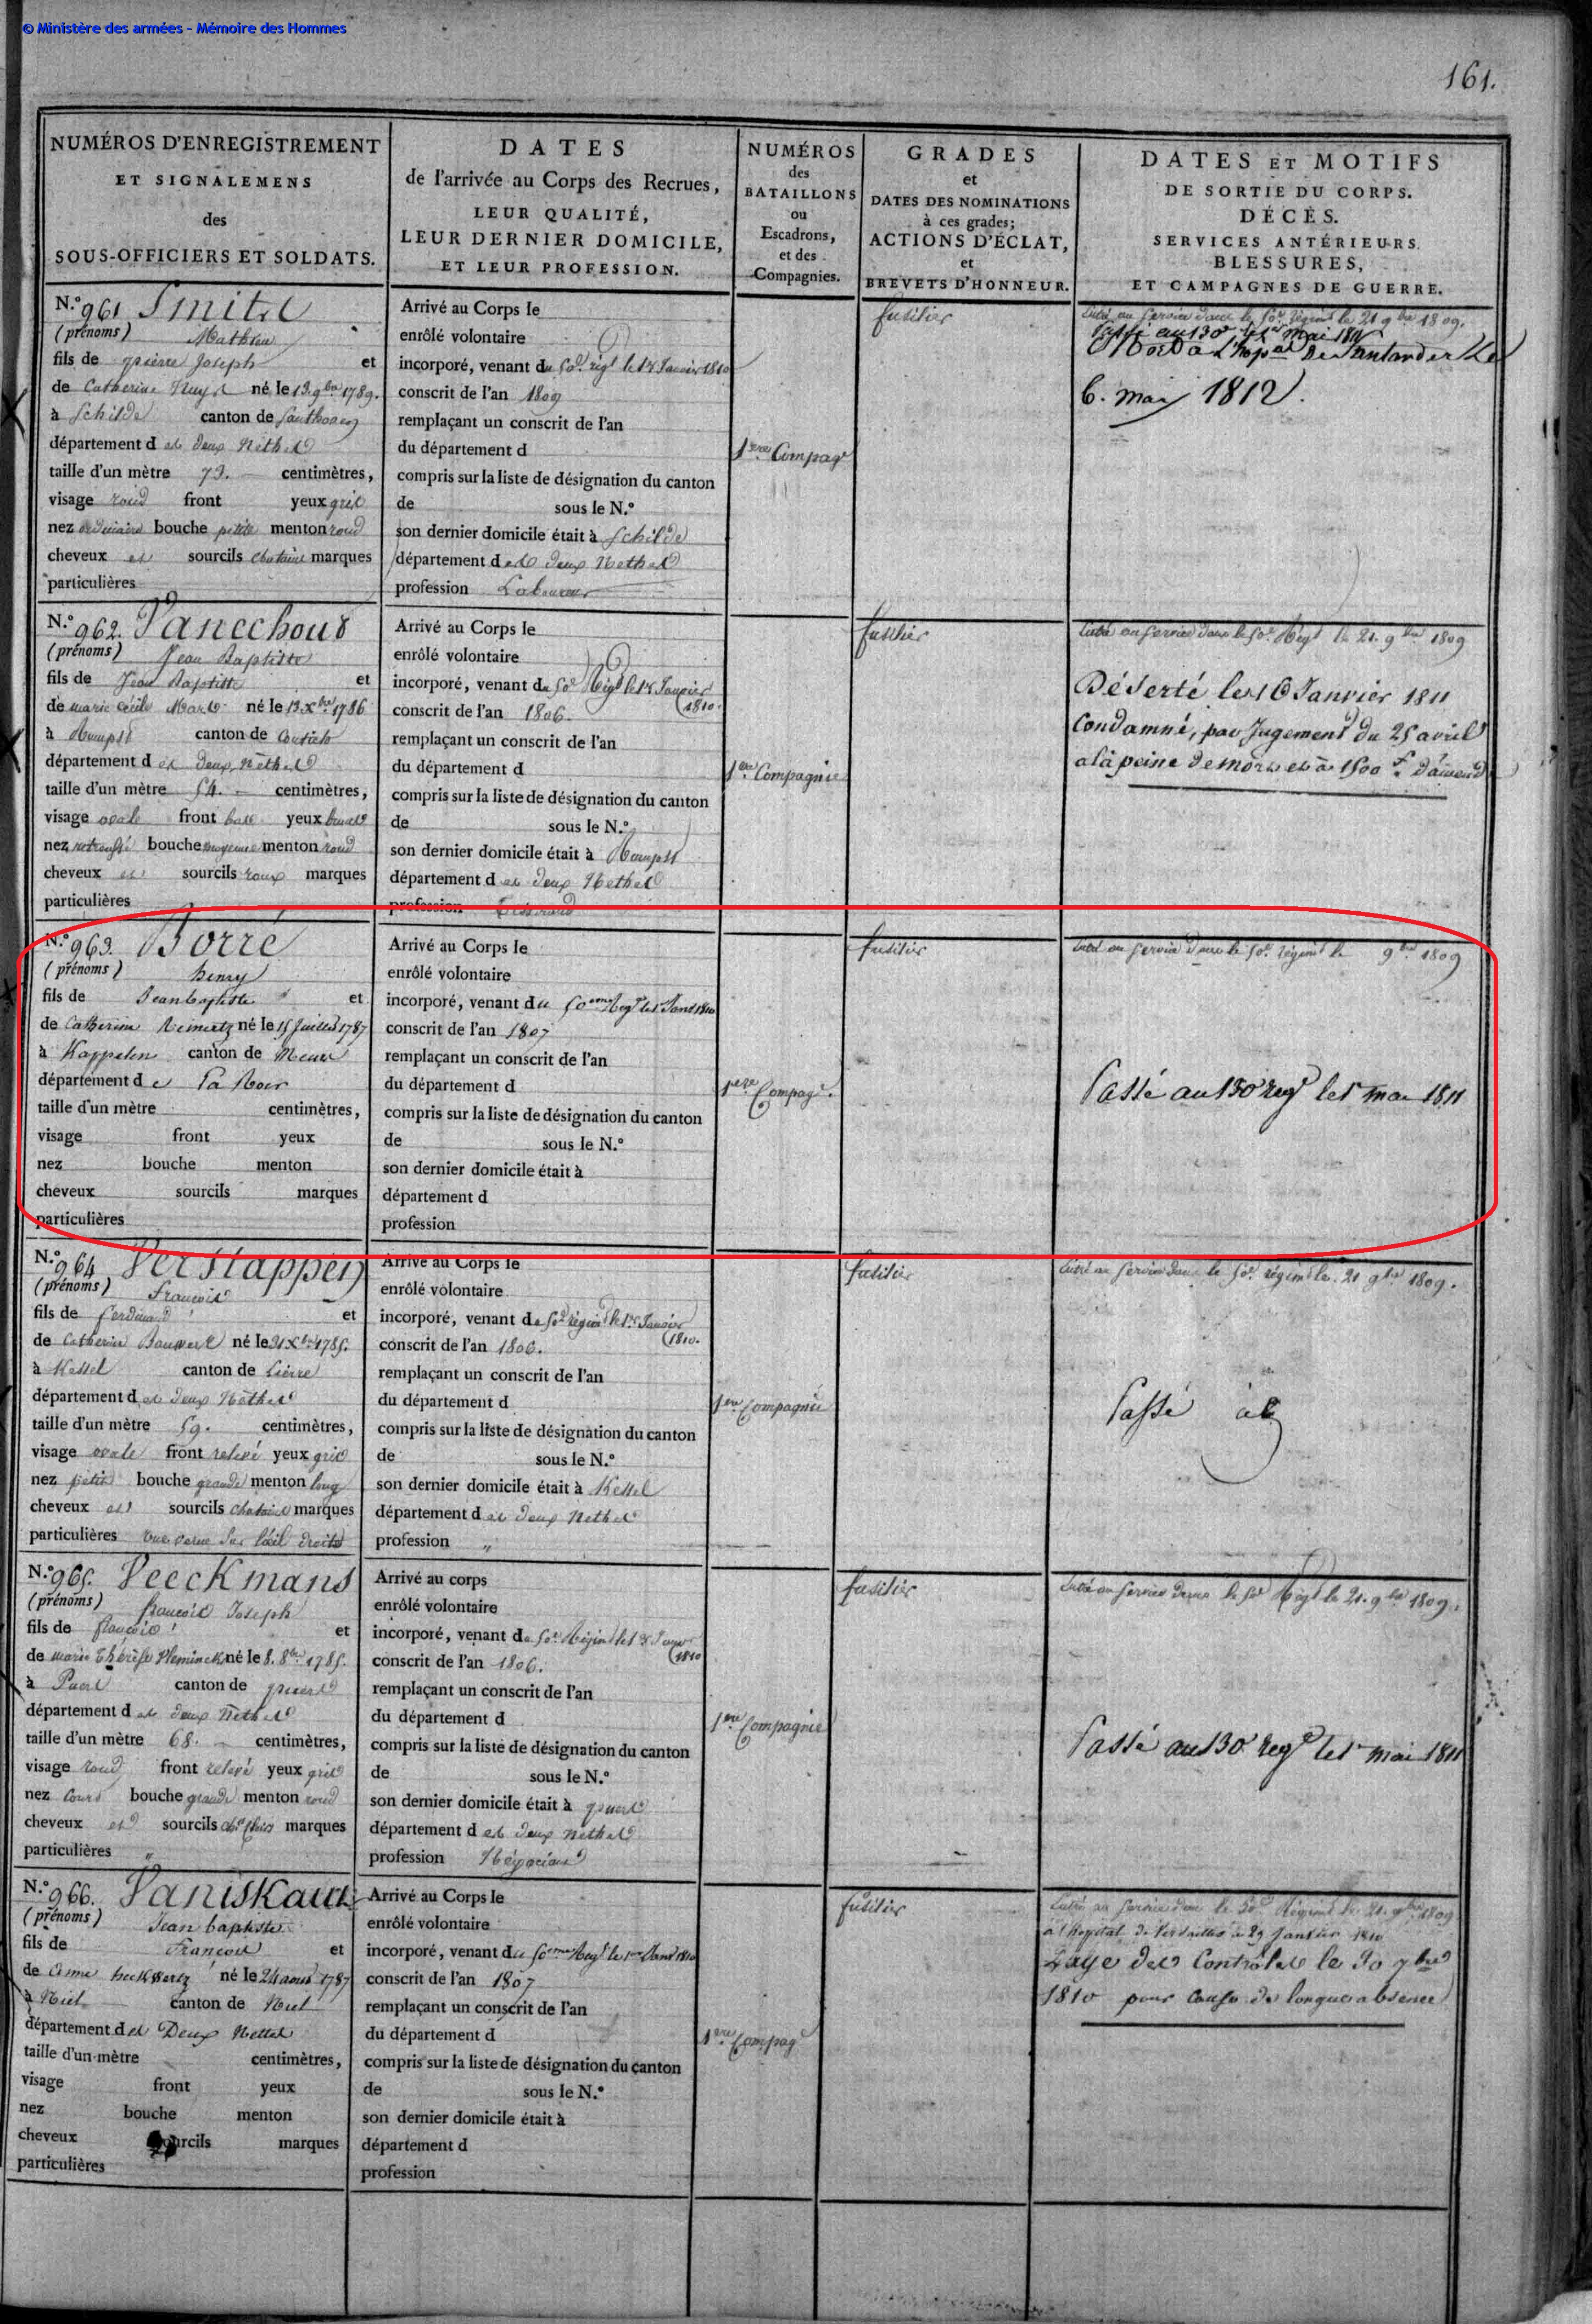 © Ministère des armées - Mémoire des Hommes
161.
NUMÉROS D'ENREGISTREMENT
ET SIGNALEMENS
des
SOUS-OFFICIERS ET SOLDATS.
DATES
de l'arrivée au Corps des Recrues,
LEUR QUALITÉ,
LEUR DERNIER DOMICILE,
ET LEUR PROFESSION.
NUMÉROS
des
BATAILLONS
ou
Escadrons,
et des
Compagnies.
GRADES
et
DATES DES NOMINATIONS
à ces grades;
ACTIONS D'ÉCLAT,
et
BREVETS D'HONNEUR.
DATES ET MOTIFS
DE SORTIE DU CORPS.
DÉCÈS.
SERVICES ANTÉRIEURS.
BLESSURES,
ET CAMPAGNES DE GUERRE.
N.° 961
(prénoms) Mathieu
fils de pierre Joseph et
de Catherine né le 13. 9bre 1789.
à Schilde canton de
département des deux Nethes
taille d'un mètre 73. centimètres,
visage rond front yeux gris
nez ordinaire bouche petite menton rond
cheveux et sourcils chatains marques
particulières
Arrivé au Corps le
enrôlé volontaire
incorporé, venant du 50e régt le 1er Janvier 1810
conscrit de l'an 1809
remplaçant un conscrit de l'an
du département d
compris sur la liste de désignation du canton
de sous le N.°
son dernier domicile était à Schilde
département des deux Nethes
profession Laboureur
1ere Compag
fusilier
Entré au service dans le 50e régiment le 21 9bre 1809.
Passé au 130e le 1er mai 1811
Mort à l'hopal de Santander le
6. mai 1812.
N.° 962. Vanechout
(prénoms) Jean Baptiste
fils de Jean Baptiste et
de marie Cécile né le 13 Xbre 1786
à canton de Contich
département des deux Nethes
taille d'un mètre 54. centimètres,
visage ovale front bas yeux
nez retroussé bouche moyenne menton rond
cheveux et sourcils roux marques
particulières
Arrivé au Corps le
enrôlé volontaire
incorporé, venant du 50e Régt le 1er Janvier
1810.
conscrit de l'an 1806.
remplaçant un conscrit de l'an
du département d
compris sur la liste de désignation du canton
de sous le N.°
son dernier domicile était à
département des deux Nethes
profession Tisserand
1ere Compagnie
fusilier
Entré au service dans le 50e Régt le 21. 9bre 1809
Déserté le 16 Janvier 1811
Condamné, par Jugement du 25 avril
a la peine de mort et à 1500 f. d'amende
N.° 963. Borré
(prénoms) henry
fils de Jean baptiste et
de Catherine Reinertz né le 15 Juillet 1787
à Kappelen canton de Meurs
département de la Roer
taille d'un mètre centimètres,
visage front yeux
nez bouche menton
cheveux sourcils marques
particulières
Arrivé au Corps le
enrôlé volontaire
incorporé, venant du 50eme Regt le 1er Janv 1810
conscrit de l'an 1807
remplaçant un conscrit de l'an
du département d
compris sur la liste de désignation du canton
de sous le N.°
son dernier domicile était à
département d
profession
1ere Compage.
fusilier
Entré au service dans le 50e régiment le 9bre 1809
Passé au 130 regt le 1er mai 1811
N.° 964 Verstappen
(prénoms) François
fils de ferdinand et
de Catherine né le 21 Xbre 1785.
à Kessel canton de Lierre
département des deux Nethes
taille d'un mètre 59. centimètres,
visage ovale front relevé yeux gris
nez petit bouche grande menton long
cheveux et sourcils chatains marques
particulières une verue sur l'œil droit
Arrivé au Corps le
enrôlé volontaire
incorporé, venant du 50e régim le 1er Janvier
1810.
conscrit de l'an 1806.
remplaçant un conscrit de l'an
du département d
compris sur la liste de désignation du canton
de sous le N.°
son dernier domicile était à Kessel
département des deux Nethes
profession "
1ere Compagnie
fusilier
Entré au service dans le 50e régiment le 21 9bre 1809.
Passé
N.° 965. Veeckmans
(prénoms) françois Joseph
fils de françois et
de marie thérèse né le 8. 8bre 1785.
à Puers canton de puers
département des deux Nethes
taille d'un mètre 68. centimètres,
visage rond front relevé yeux gris
nez court bouche grande menton rond
cheveux et sourcils marques
particulières "
Arrivé au corps
enrôlé volontaire
incorporé, venant du 50e Régim le 1er Janv
1810
conscrit de l'an 1806.
remplaçant un conscrit de l'an
du département d
compris sur la liste de désignation du canton
de sous le N.°
son dernier domicile était à puers
département des deux Nethes
profession Négociant
1ere Compagnie
fusilier
Entré au service dans le 50e Régt le 21. 9bre 1809.
Passé au 130 regt le 1er mai 1811
N.° 966.
(prénoms) Jean baptiste
fils de François et
de Anne né le 24 aout 1787
à Niel canton de Niel
département des Deux Nettes
taille d'un mètre centimètres,
visage front yeux
nez bouche menton
cheveux sourcils marques
particulières
Arrivé au Corps le
enrôlé volontaire
incorporé, venant du 50eme Regt le 1er Janv 1810
conscrit de l'an 1807
remplaçant un conscrit de l'an
du département d
compris sur la liste de désignation du canton
de sous le N.°
son dernier domicile était à
département d
profession
1ere Compag
fusilier
Entré au service dans le 50e Régiment le 21. 9bre 1809
à l'hopital de Versailles le 29 Janvier 1810
Rayé des Contrôles le 30 7bre
1810 pour cause de longue absence